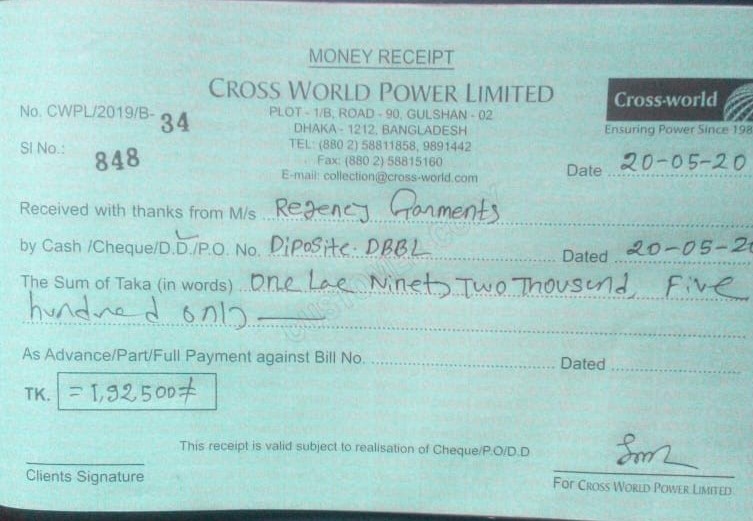 MONEY RECEIPT
CROSS WORLD POWER LIMITED
PLOT - 1/B, ROAD - 90, GULSHAN - 02
DHAKA - 1212, BANGLADESH
TEL: (880 2) 58811858, 9891442
Fax: (880 2) 58815160
E-mail: collection@cross-world.com
Cross-world
Ensuring Power Since 198
No. CWPL/2019/B- 34
Sl No.: 848
Date 20-05-20
Received with thanks from M/s Regency Garments
by Cash /Cheque/D.D./P.O. No. Diposite. DBBL Dated 20-05-20
The Sum of Taka (in words) One Lac Ninety Two Thousand, Five
hundred only
As Advance/Part/Full Payment against Bill No. Dated
TK. = 1,92,500/=
This receipt is valid subject to realisation of Cheque/P.O/D.D
Clients Signature
For CROSS WORLD POWER LIMITED
CUSTOMER COPY